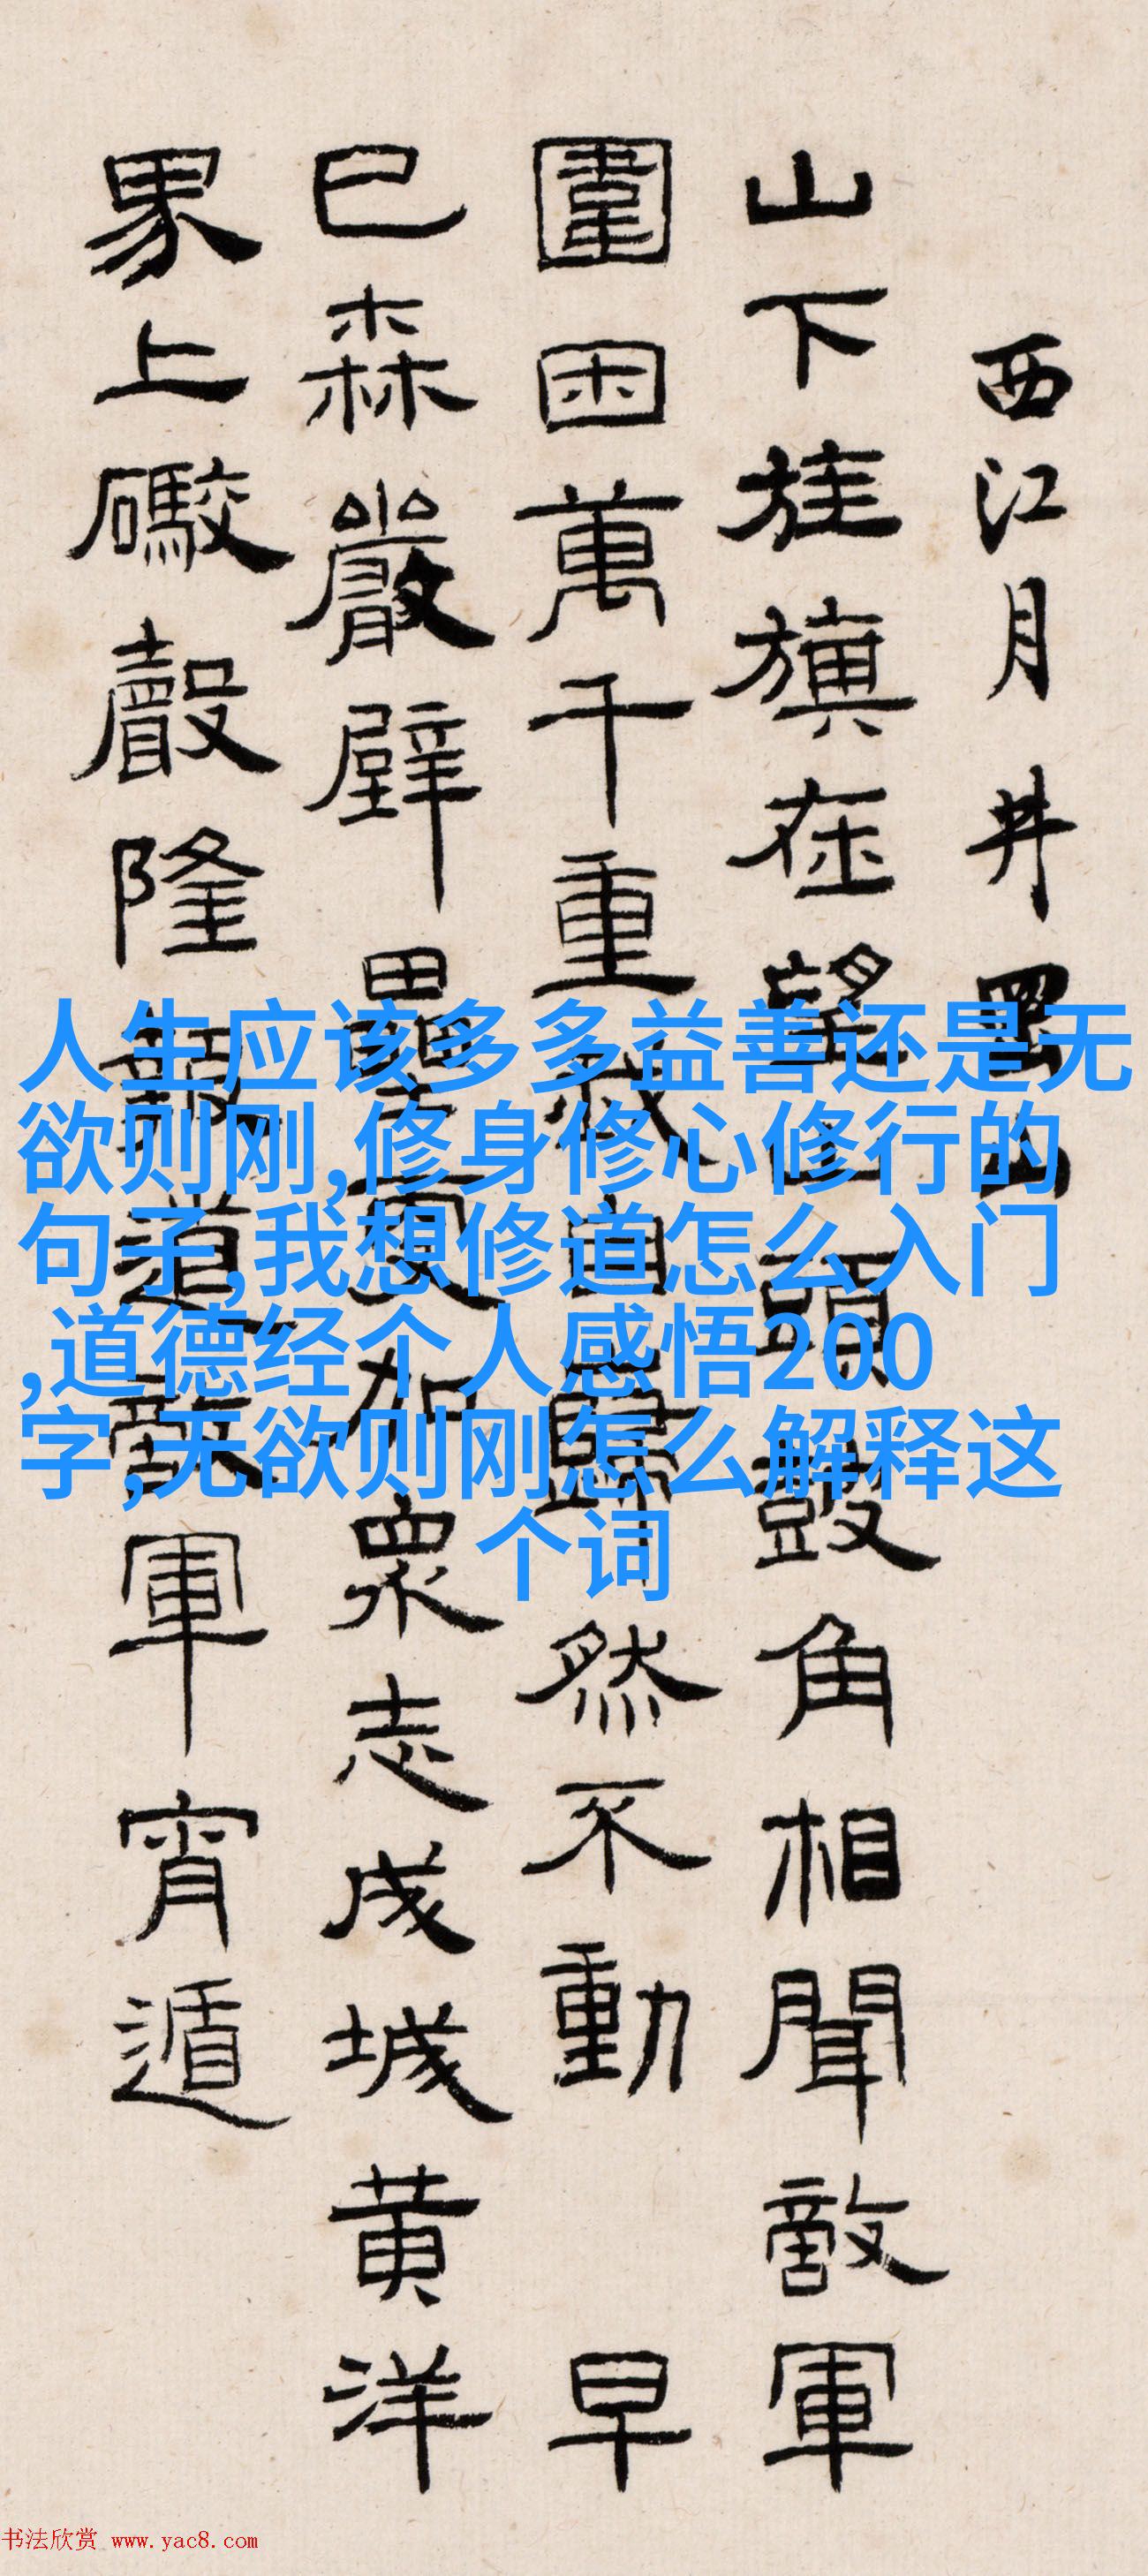 西江月井岡山
山下旌旗在望山頭鼓角相聞敵軍
圍困萬千重我自巋然不動 早
已森嚴壁壘更加衆志成城黄洋
界上礮聲隆報道敵軍宵遁
人生应该多多益善还是无
欲则刚,修身修心修行的
句子,我想修道怎么入门
,道德经个人感悟200
字,无欲则刚怎么解释这
个词
书法欣赏 www.yac8.com